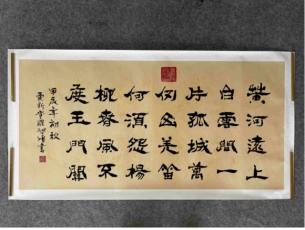 黄河遠上
白雲間一
片孤城萬
仞山羌笛
何須怨楊
柳春風不
度玉門關
甲辰年初秋
書